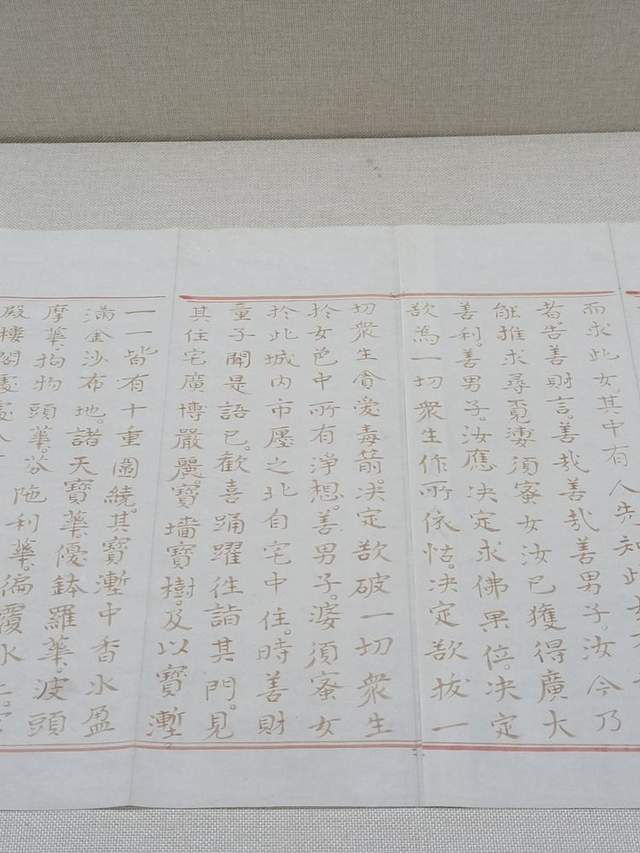 而求此女。其中有人先知此
者告善財言。善哉善哉善男子。汝今乃
能推求尋覓婆須蜜女汝已獲得廣大
善利。善男子。汝應決定求佛果位。決定
欲為一切衆生作所依怙。決定欲拔一
切衆生貪愛毒箭。決定欲破一切衆生
於女色中所有淨想。善男子。婆須蜜女
於此城內市廛之北自宅中住。時善財
童子聞是語已。歡喜踊躍往詣其門。見
其住宅廣博嚴麗。寶墻寶樹。及以寶塹
一一皆有十重圍繞。其寶塹中香水盈
滿金沙布地。諸天寶華。優鉢羅華。波頭
摩華。拘物頭華。芬陁利華。徧覆水上。
殿樓閣處處